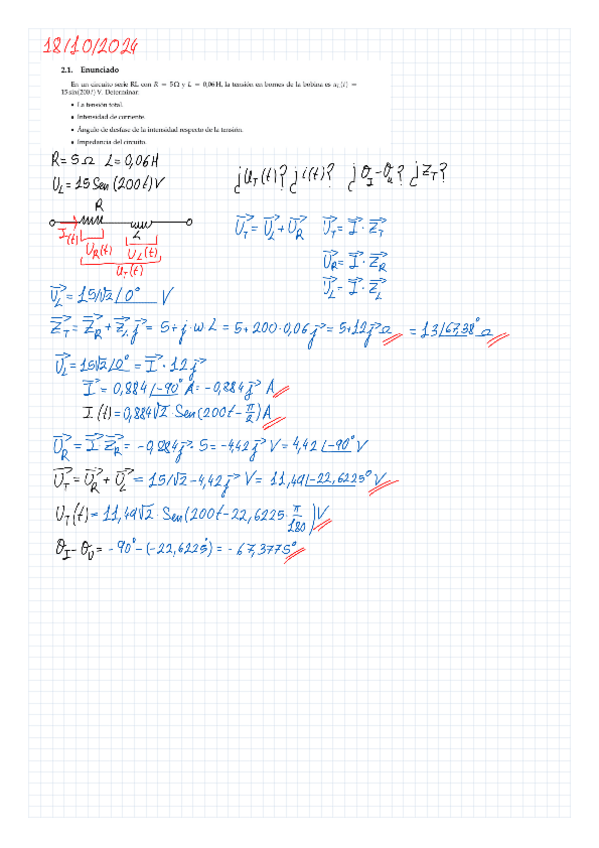 18/10/2024
2.1. Enunciado
En un circuito serie RL con R = 5 Ω y L = 0,06 H, la tensión en bornes de la bobina es u_L(t) =
15 sin(200t) V. Determinar:
• La tensión total.
• Intensidad de corriente.
• Ángulo de desfase de la intensidad respecto de la tensión.
• Impedancia del circuito.
R = 5 Ω L = 0,06 H
¿U_T(t)? ¿i(t)? ¿θ_I - θ_u? ¿Z_T?
U_L = 15 Sen (200t) V
R
I(t) U_R(t) L U_L(t)
U_T(t)
U_T = U_L + U_R U_T = I · Z_T
U_R = I · Z_R
U_L = I · Z_L
U_L = 15/√2 /0° V
Z_T = Z_R + Z_L j = 5 + j · w · L = 5 + 200 · 0,06 j = 5 + 12 j Ω = 13 /67,38° Ω
U_L = 15√2 /0° = I · 12 j
I = 0,884 /-90° A = -0,884 j A
I(t) = 0,884√2 · Sen (200t - π/2) A
U_R = I · Z_R = -0,884 j · 5 = -4,42 j V = 4,42 /-90° V
U_T = U_R + U_L = 15/√2 - 4,42 j V = 11,49 /-22,6225° V
U_T(t) = 11,49√2 · Sen (200t - 22,6225 · π/180) V
θ_I - θ_U = -90° - (-22,6225°) = -67,3775°